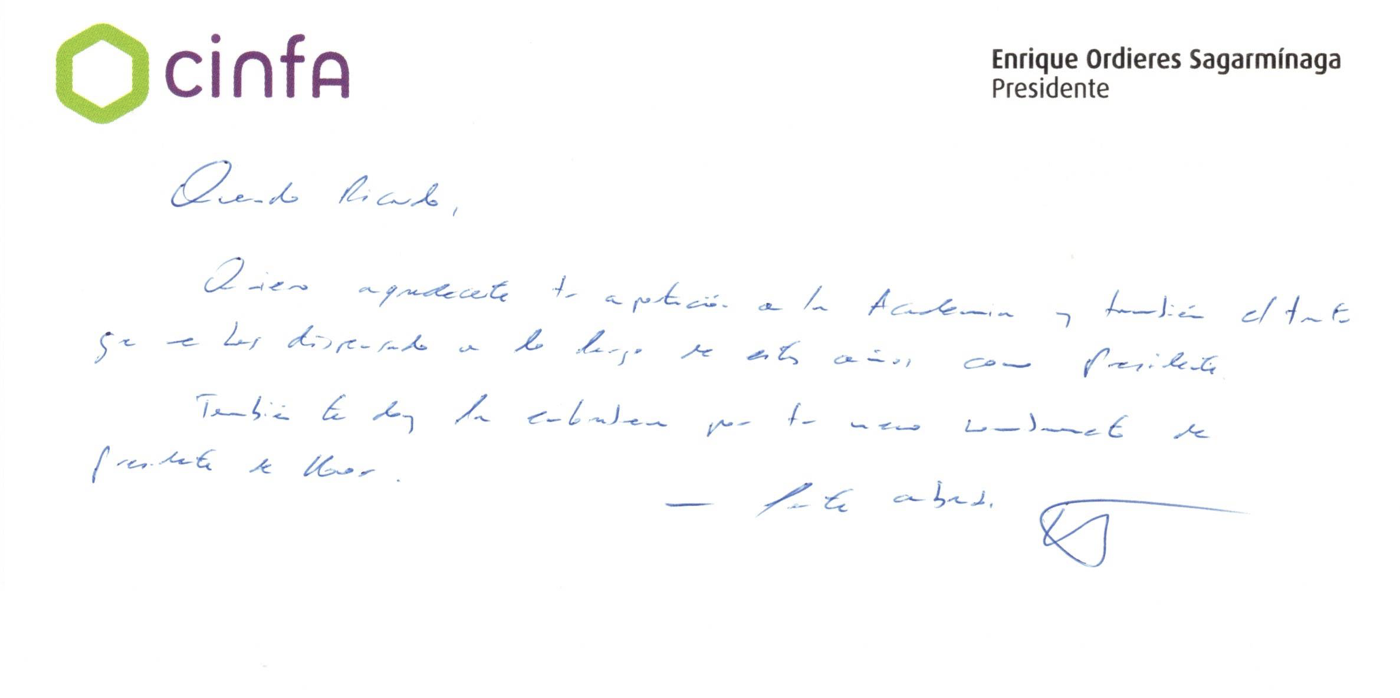 cinfa
Enrique Ordieres Sagarmínaga
Presidente
Querido Ricardo,
Quiero agradecerte tu aportación a la Academia y también el trato
que me has dispensado a lo largo de estos años como Presidente.
También te doy la enhorabuena por tu nuevo nombramiento de
presidente de Honor.
— Fuerte abrazo.